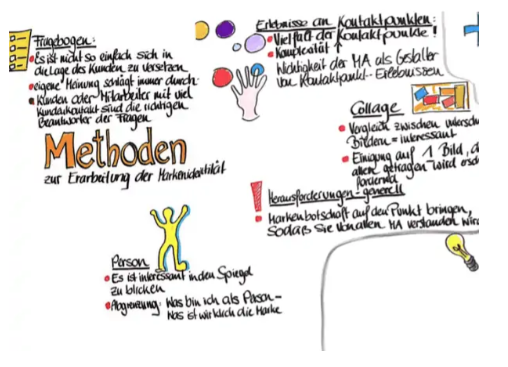 Fragebogen:
• Es ist nicht so einfach sich in
die Lage des Kunden zu versetzen.
• eigene Meinung schlägt immer durch.
• Kunden oder Mitarbeiter mit viel
Kundenkontakt sind die richtigen
Beantworter der Fragen
Methoden
zur Erarbeitung der Markenidentität
Erlebnisse an Kontaktpunkten:
• Vielfalt der Kontaktpunkte!
• Komplexität!
Wichtigkeit der MA als Gestalter
von Kontaktpunkt-Erlebnissen
Collage
• Vergleich zwischen untersch
Bildern = interessant
• Einigung auf 1 Bild, d
allen getragen wird
Herausforderungen - generell
• Markenbotschaft auf den Punkt bringen,
sodaß sie von allen MA verstanden wird
Person
• Es ist interessant in den Spiegel
zu blicken
• Abgrenzung: Was bin ich als Person -
was ist wirklich die Marke